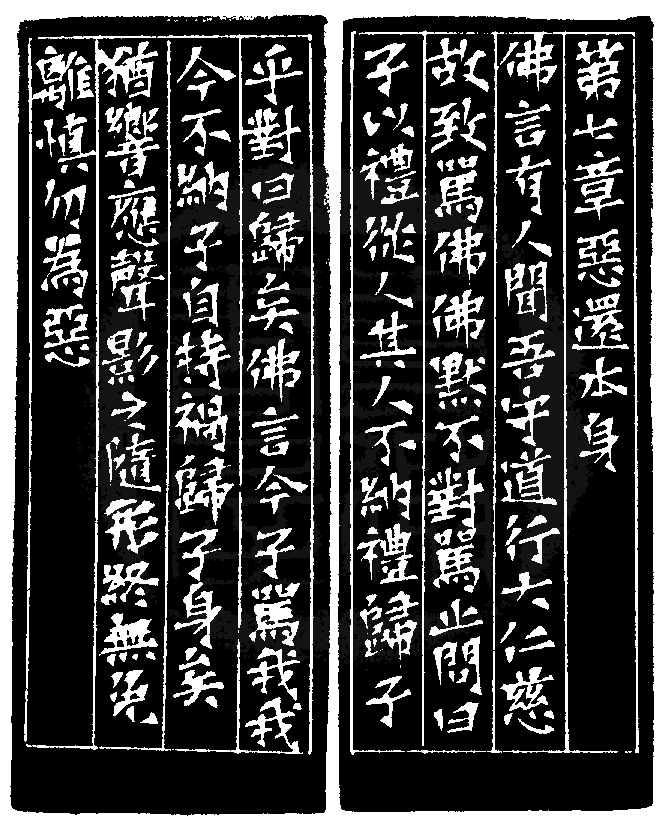 第七章惡還本身
佛言有人聞吾守道行大仁慈
故致罵佛佛默不對罵止問曰
子以禮從人其人不納禮歸子
乎對曰歸矣佛言今子罵我我
今不納子自持禍歸子身矣
猶響應聲影之隨形終無免
離慎勿為惡